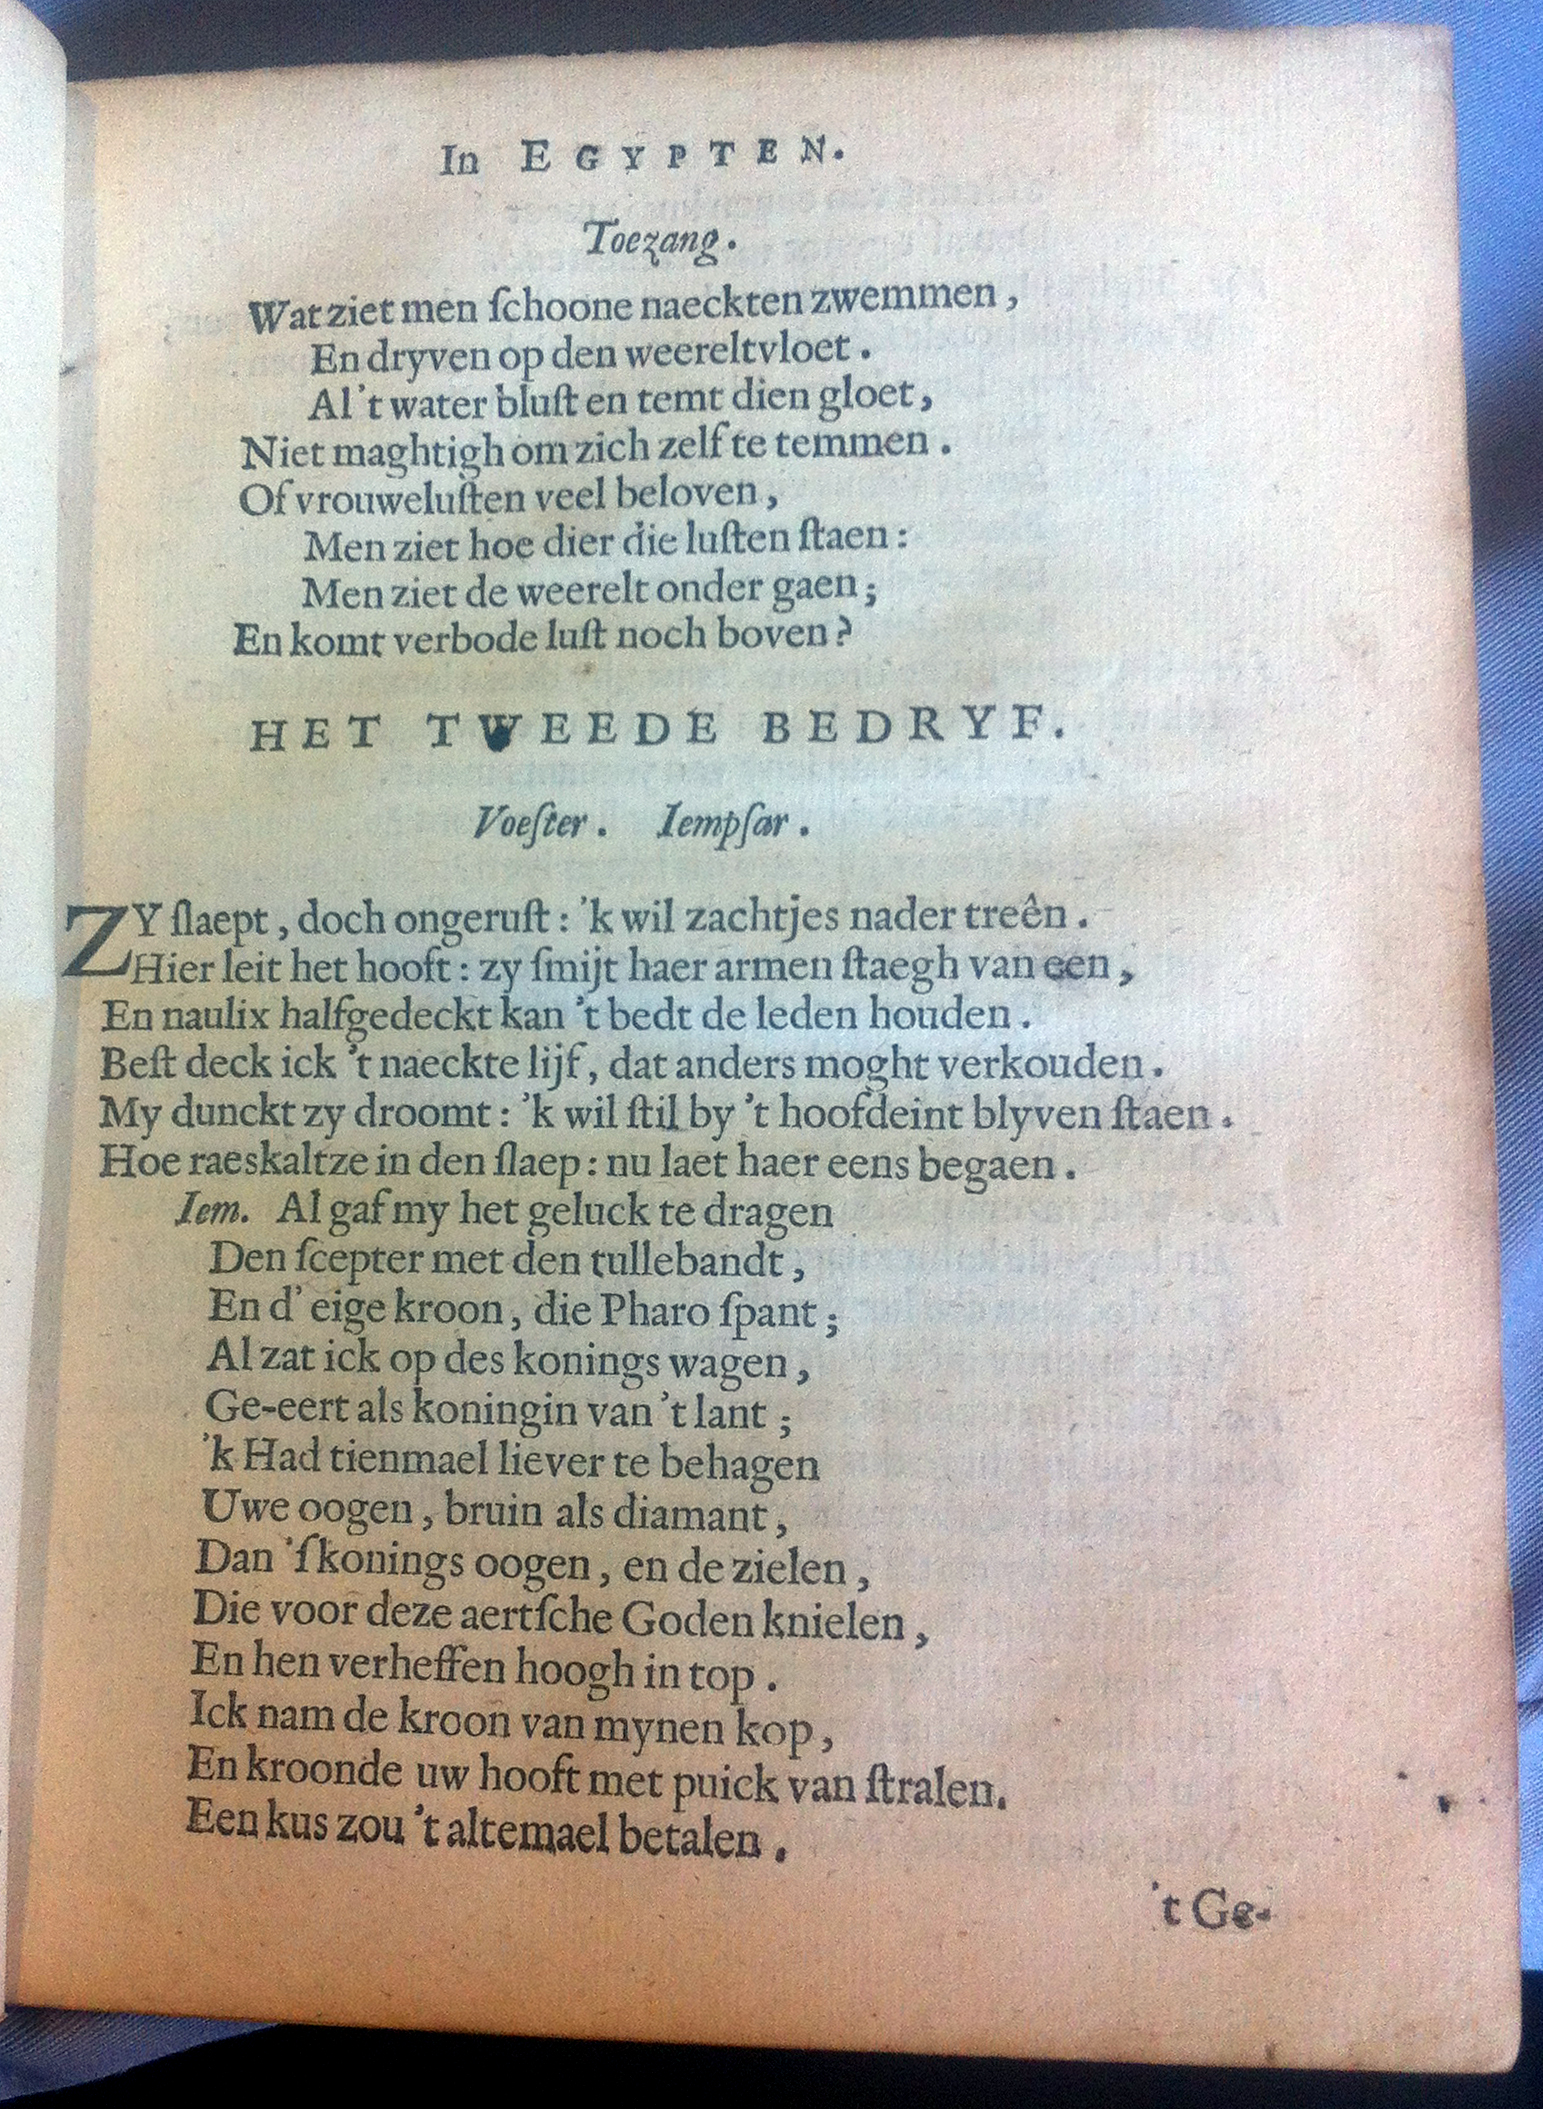 In EGYPTEN.
Toezang.
Wat ziet men ſchoone naeckten zwemmen,
En dryven op den weereltvloet.
Al 't water bluſt en temt dien gloet,
Niet maghtigh om zich zelf te temmen.
Of vrouweluſten veel beloven,
Men ziet hoe dier die luſten ſtaen:
Men ziet de weerelt onder gaen;
En komt verbode luſt noch boven?
HET TWEEDE BEDRYF.
Voeſter. Iempſar.
ZY ſlaept, doch ongeruſt: 'k wil zachtjes nader treên.
Hier leit het hooft: zy ſmijt haer armen ſtaegh van een,
En naulix halfgedeckt kan 't bedt de leden houden.
Beſt deck ick 't naeckte lijf, dat anders moght verkouden.
My dunckt zy droomt: 'k wil ſtil by 't hoofdeint blyven ſtaen.
Hoe raeskaltze in den ſlaep: nu laet haer eens begaen.
Iem. Al gaf my het geluck te dragen
Den ſcepter met den tullebandt,
En d' eige kroon, die Pharo ſpant;
Al zat ick op des konings wagen,
Ge-eert als koningin van 't lant;
'k Had tienmael liever te behagen
Uwe oogen, bruin als diamant,
Dan 'ſkonings oogen, en de zielen,
Die voor deze aertſche Goden knielen,
En hen verheffen hoogh in top.
Ick nam de kroon van mynen kop,
En kroonde uw hooft met puick van ſtralen.
Een kus zou 't altemael betalen.
't Ge-